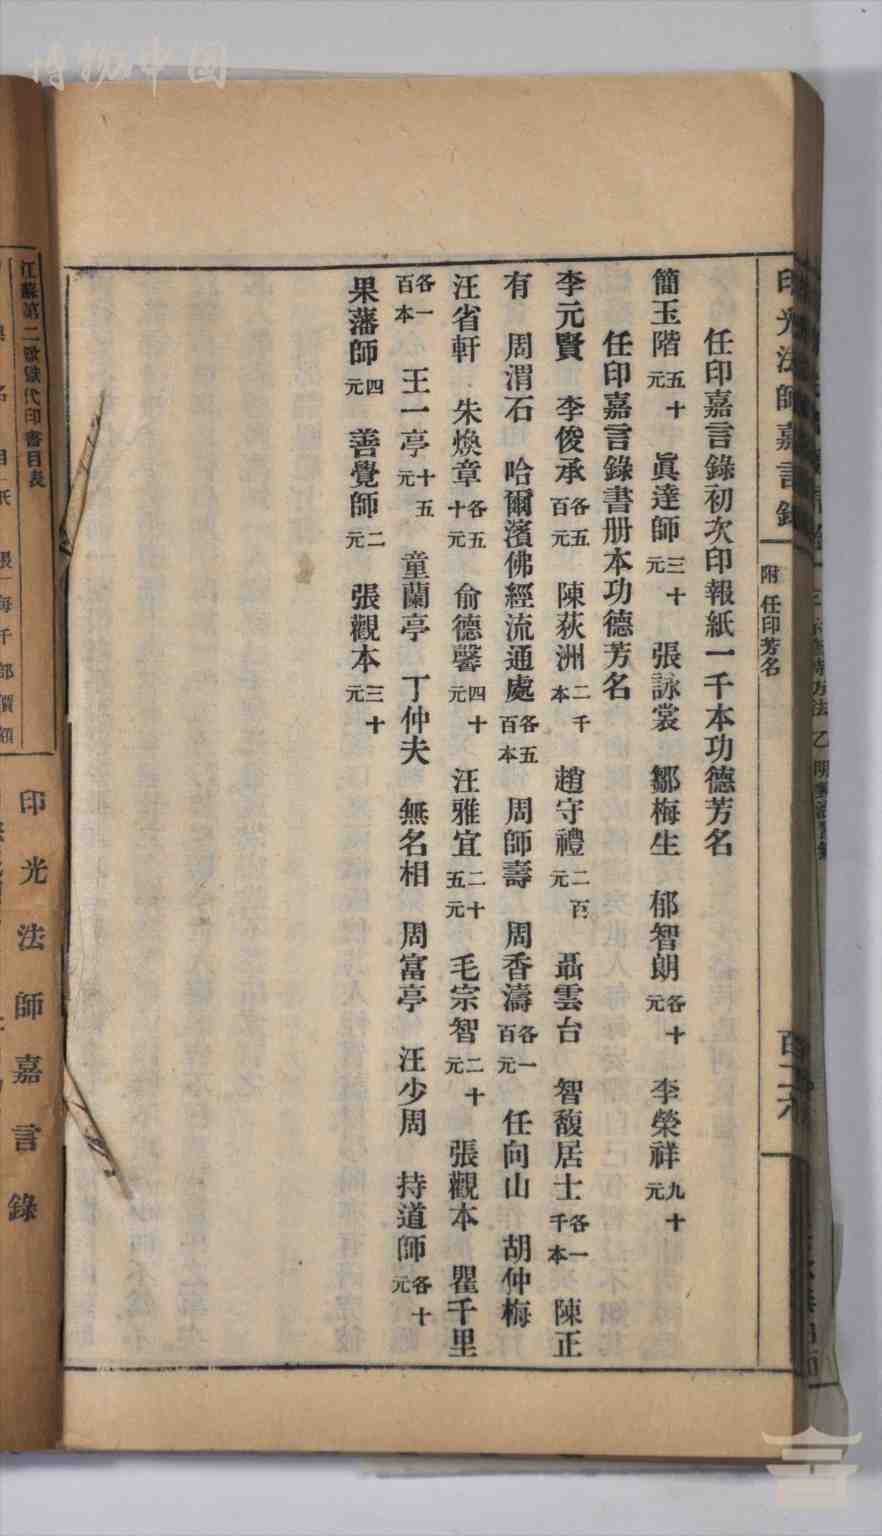 博物中国
印光法師嘉言錄
附 任印芳名
百二六
任印嘉言錄初次印報紙一千本功德芳名
簡玉階五十元 眞達師三十元 張詠裳 鄒梅生 郁智朗各十元 李榮祥九十元
任印嘉言錄書册本功德芳名
李元賢 李俊承各五百元 陳荻洲二千本 趙守禮二百元 聶雲台 智馥居士各一千本 陳正
有 周渭石 哈爾濱佛經流通處各五百本 周師壽 周香濤各一百元 任向山 胡仲梅
汪省軒 朱煥章各五十元 俞德馨四十元 汪雅宜二十五元 毛宗智二十元 張觀本 瞿千里
各一百本 王一亭十五元 童蘭亭 丁仲夫 無名相 周富亭 汪少周 持道師各十元
果藩師四元 善覺師二元 張觀本三十元
江蘇第二監獄代印書目表
名 目 紙 張 每千部價額
印光法師嘉言錄